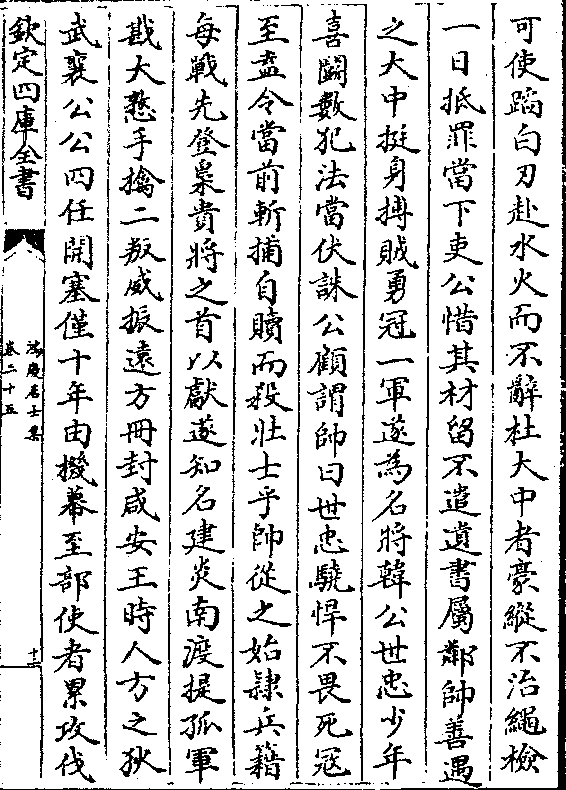 可使蹈白刃赴水火而不辭杜大中者豪縱不治繩檢
一日抵罪當下吏公惜其材留不遣遺書屬鄰帥善遇
之大中挺身搏賊勇冠一軍遂為名將韓公世忠少年
喜鬭數犯法當伏誅公顧謂帥曰世忠驍悍不畏死冦
至盍令當前斬捕自贖而殺壯士乎帥從之始隷兵籍
每戰先登梟貴將之首以獻遂知名建炎南渡提孤軍
戡大憝手擒二叛威振遠方冊封咸安王時人方之狄
武襄公公四任開塞僅十年由機幕至部使者累攻伐
欽定四庫全書
鴻慶居士集
卷二十五
十二